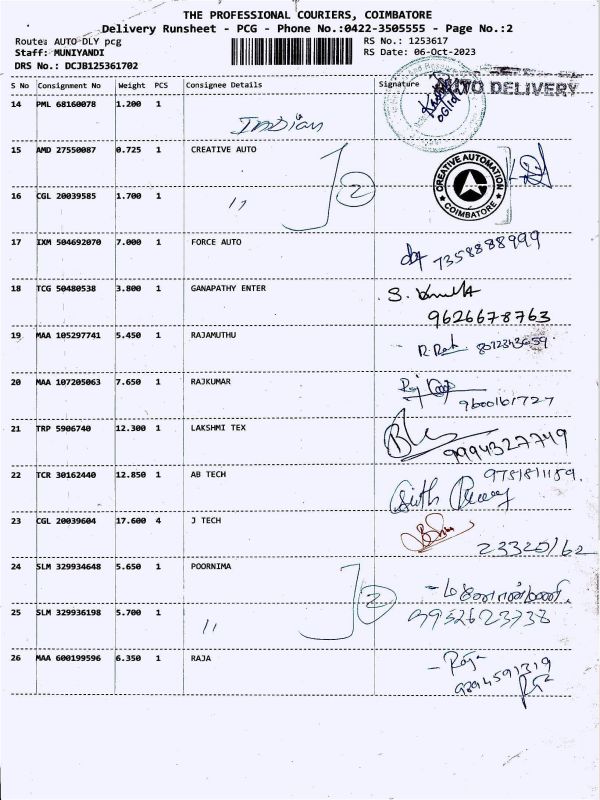 THE PROFESSIONAL COURIERS, COIMBATORE
Delivery Runsheet - PCG - Phone No.:0422-3505555 - Page No.:2
Route: AUTO DLY pcg
RS No.: 1253617
Staff: MUNIYANDI
RS Date: 06-Oct-2023
DRS No.: DCJB125361702
S No Consignment No Weight PCS Consignee Details Signature
AUTO DELIVERY
14 PML 68160078 1.200 1
Indian
15 AMD 27550087 0.725 1 CREATIVE AUTO
2
CREATIVE AUTOMATION
COIMBATORE
16 CGL 20039585 1.700 1 "
17 IXM 504692070 7.000 1 FORCE AUTO
7358888999
18 TCG 50480538 3.800 1 GANAPATHY ENTER
9626678763
19 MAA 105297741 5.450 1 RAJAMUTHU
20 MAA 107205063 7.650 1 RAJKUMAR
9600161727
21 TRP 5906740 12.300 1 LAKSHMI TEX
9994327749
22 TCR 30162440 12.850 1 AB TECH
23 CGL 20039604 17.600 4 J TECH
24 SLM 329934648 5.650 1 POORNIMA
2
25 SLM 329936198 5.700 1 "
26 MAA 600199596 6.350 1 RAJA
9894591319